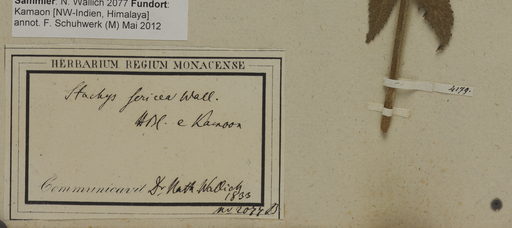 Sammler: N. Wallich 2077 Fundort:
Kamaon [NW-Indien, Himalaya]
annot. F. Schuhwerk (M) Mai 2012
HERBARIUM REGIUM MONACENSE
Stachys sericea Wall.
HBC. e Kamoon
Communicavit Dr. Nath. Wallich
1833
no 2077 B
4179.